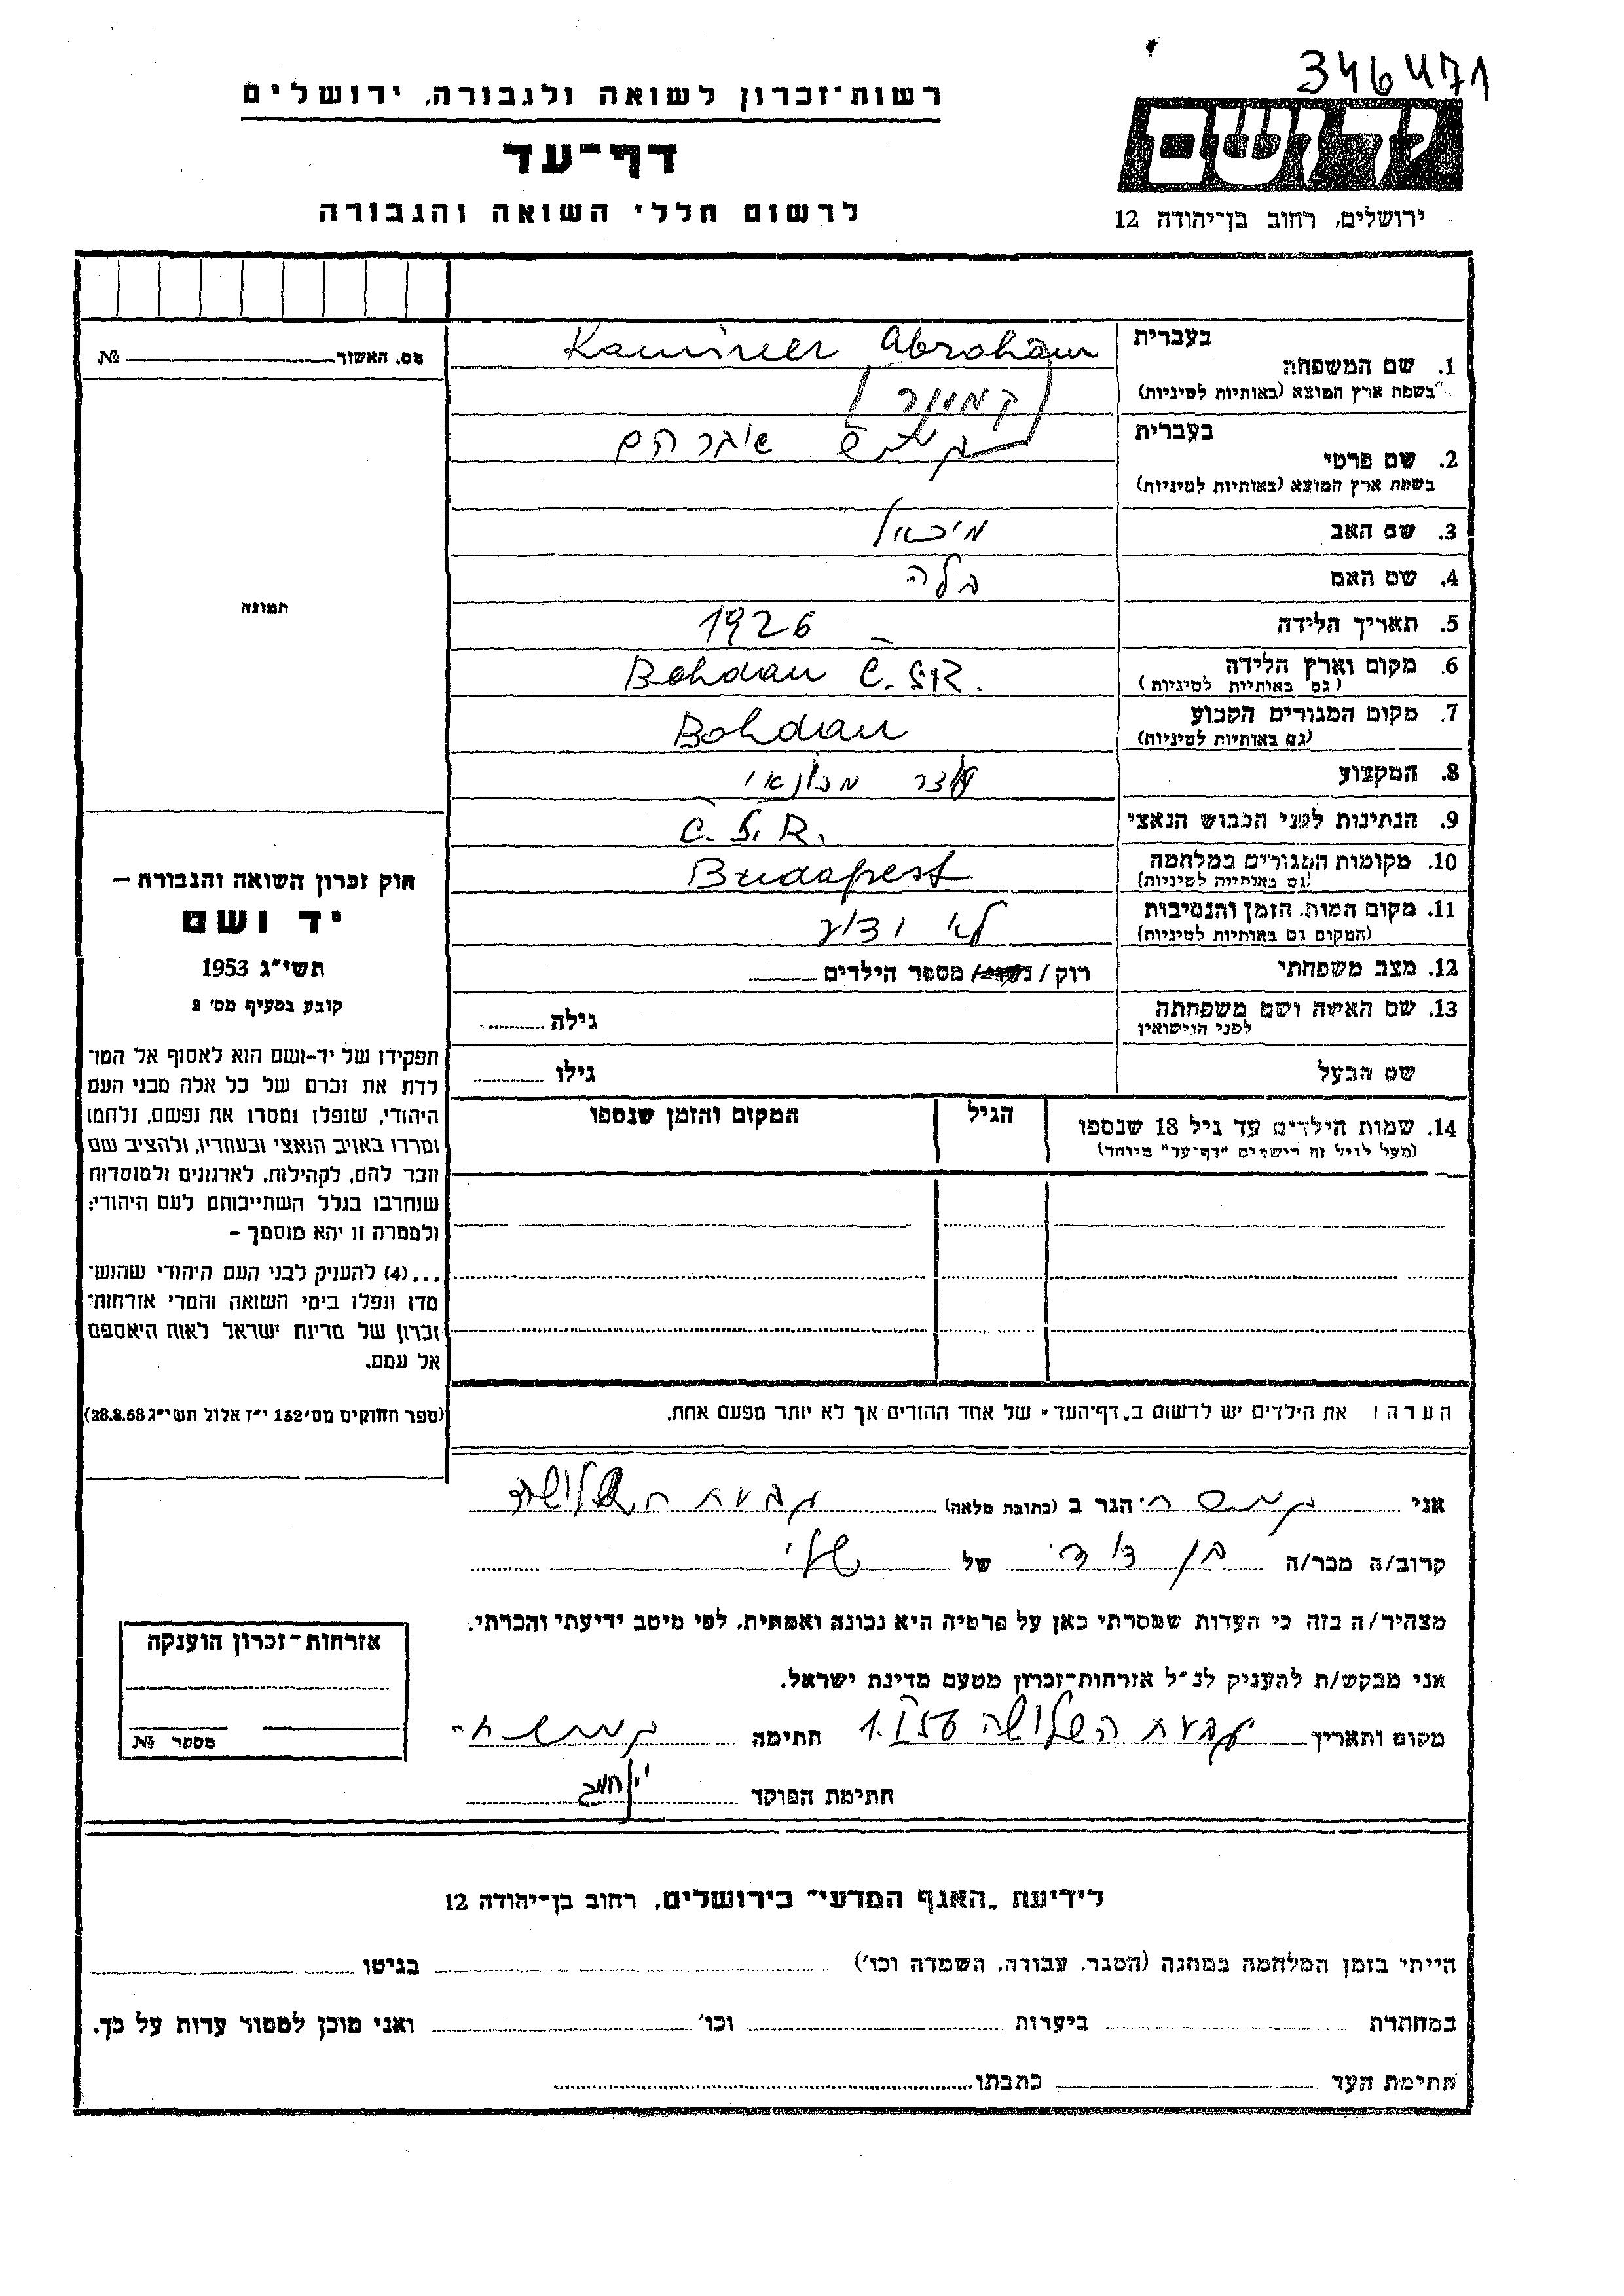 346471
רשות־זכרון לשואה ולגבורה, ירושלים
דף־עד
לרשום חללי השואה והגבורה
יד ושם
ירושלים, רחוב בן־יהודה 12
מס. האשור № 
בעברית
1. שם המשפחה
בשפת ארץ המוצא (באותיות לטיניות)
Kaminer Abraham
קמינר
בעברית
2. שם פרטי
בשפת ארץ המוצא (באותיות לטיניות)
3. שם האב מיכאל
4. שם האם בלה
5. תאריך הלידה 1926
6. מקום וארץ הלידה Bohdan Č.S.R.
(גם באותיות לטיניות)
7. מקום המגורים הקבוע Bohdan
(גם באותיות לטיניות)
8. המקצוע עוזר מכונאי
9. הנתינות לפני הכבוש הנאצי Č.S.R.
10. מקומות המגורים במלחמה Budapest
(גם באותיות לטיניות)
11. מקום המות, הזמן והנסיבות לא ידוע
(המקום גם באותיות לטיניות)
12. מצב משפחתי רוק / נשוי / מספר הילדים
13. שם האישה ושם משפחתה גילה
לפני הנישואין
שם הבעל גילו
14. שמות הילדים עד גיל 18 שנספו הגיל המקום והזמן שנספו
(מעל לגיל זה רישמים "דף־עד" מיוחד)
תמונה
חוק זכרון השואה והגבורה –
יד ושם
תשי״ג 1953
קובע בסעיף מס׳ 2
תפקידו של יד־ושם הוא לאסוף אל המו־
לדת את זכרם של כל אלה מבני העם
היהודי, שנפלו ומסרו את נפשם, נלחמו
ומרדו באויב הנאצי ובעוזריו, ולהציב שם
וזכר להם, לקהילות, לארגונים ולמוסדות
שנחרבו בגלל השתייכותם לעם היהודי;
ולמטרה זו יהא מוסמך –
...(4) להעניק לבני העם היהודי שהוש־
מדו ונפלו בימי השואה והמרי אזרחות־
זכרון של מדינת ישראל לאות היאספם
אל עמם.
(ספר החוקים מס׳ 132 י״ז אלול תשי״ג 28.8.53)
הערה: את הילדים יש לרשום ב„דף־העד" של אחד ההורים אך לא יותר מפעם אחת.
אני הגר ב (כתובת מלאה) גבעת השלושה
קרוב/ה מכר/ה בן דוד של שלי
מצהיר/ה בזה כי העדות שמסרתי כאן על פרטיה היא נכונה ואמתית, לפי מיטב ידיעתי והכרתי.
אני מבקש/ת להעניק לנ״ל אזרחות־זכרון מטעם מדינת ישראל.
מקום ותאריך גבעת השלושה חתימה
חתימת הפוקד
אזרחות־זכרון הוענקה
מספר №
לידיעת „האגף המדעי" בירושלים, רחוב בן־יהודה 12
הייתי בזמן המלחמה במחנה (הסגר, עבודה, השמדה וכו׳) בגיטו
במחתרת ביערות וכו׳ ואני מוכן למסור עדות על כך.
חתימת העד כתבתו